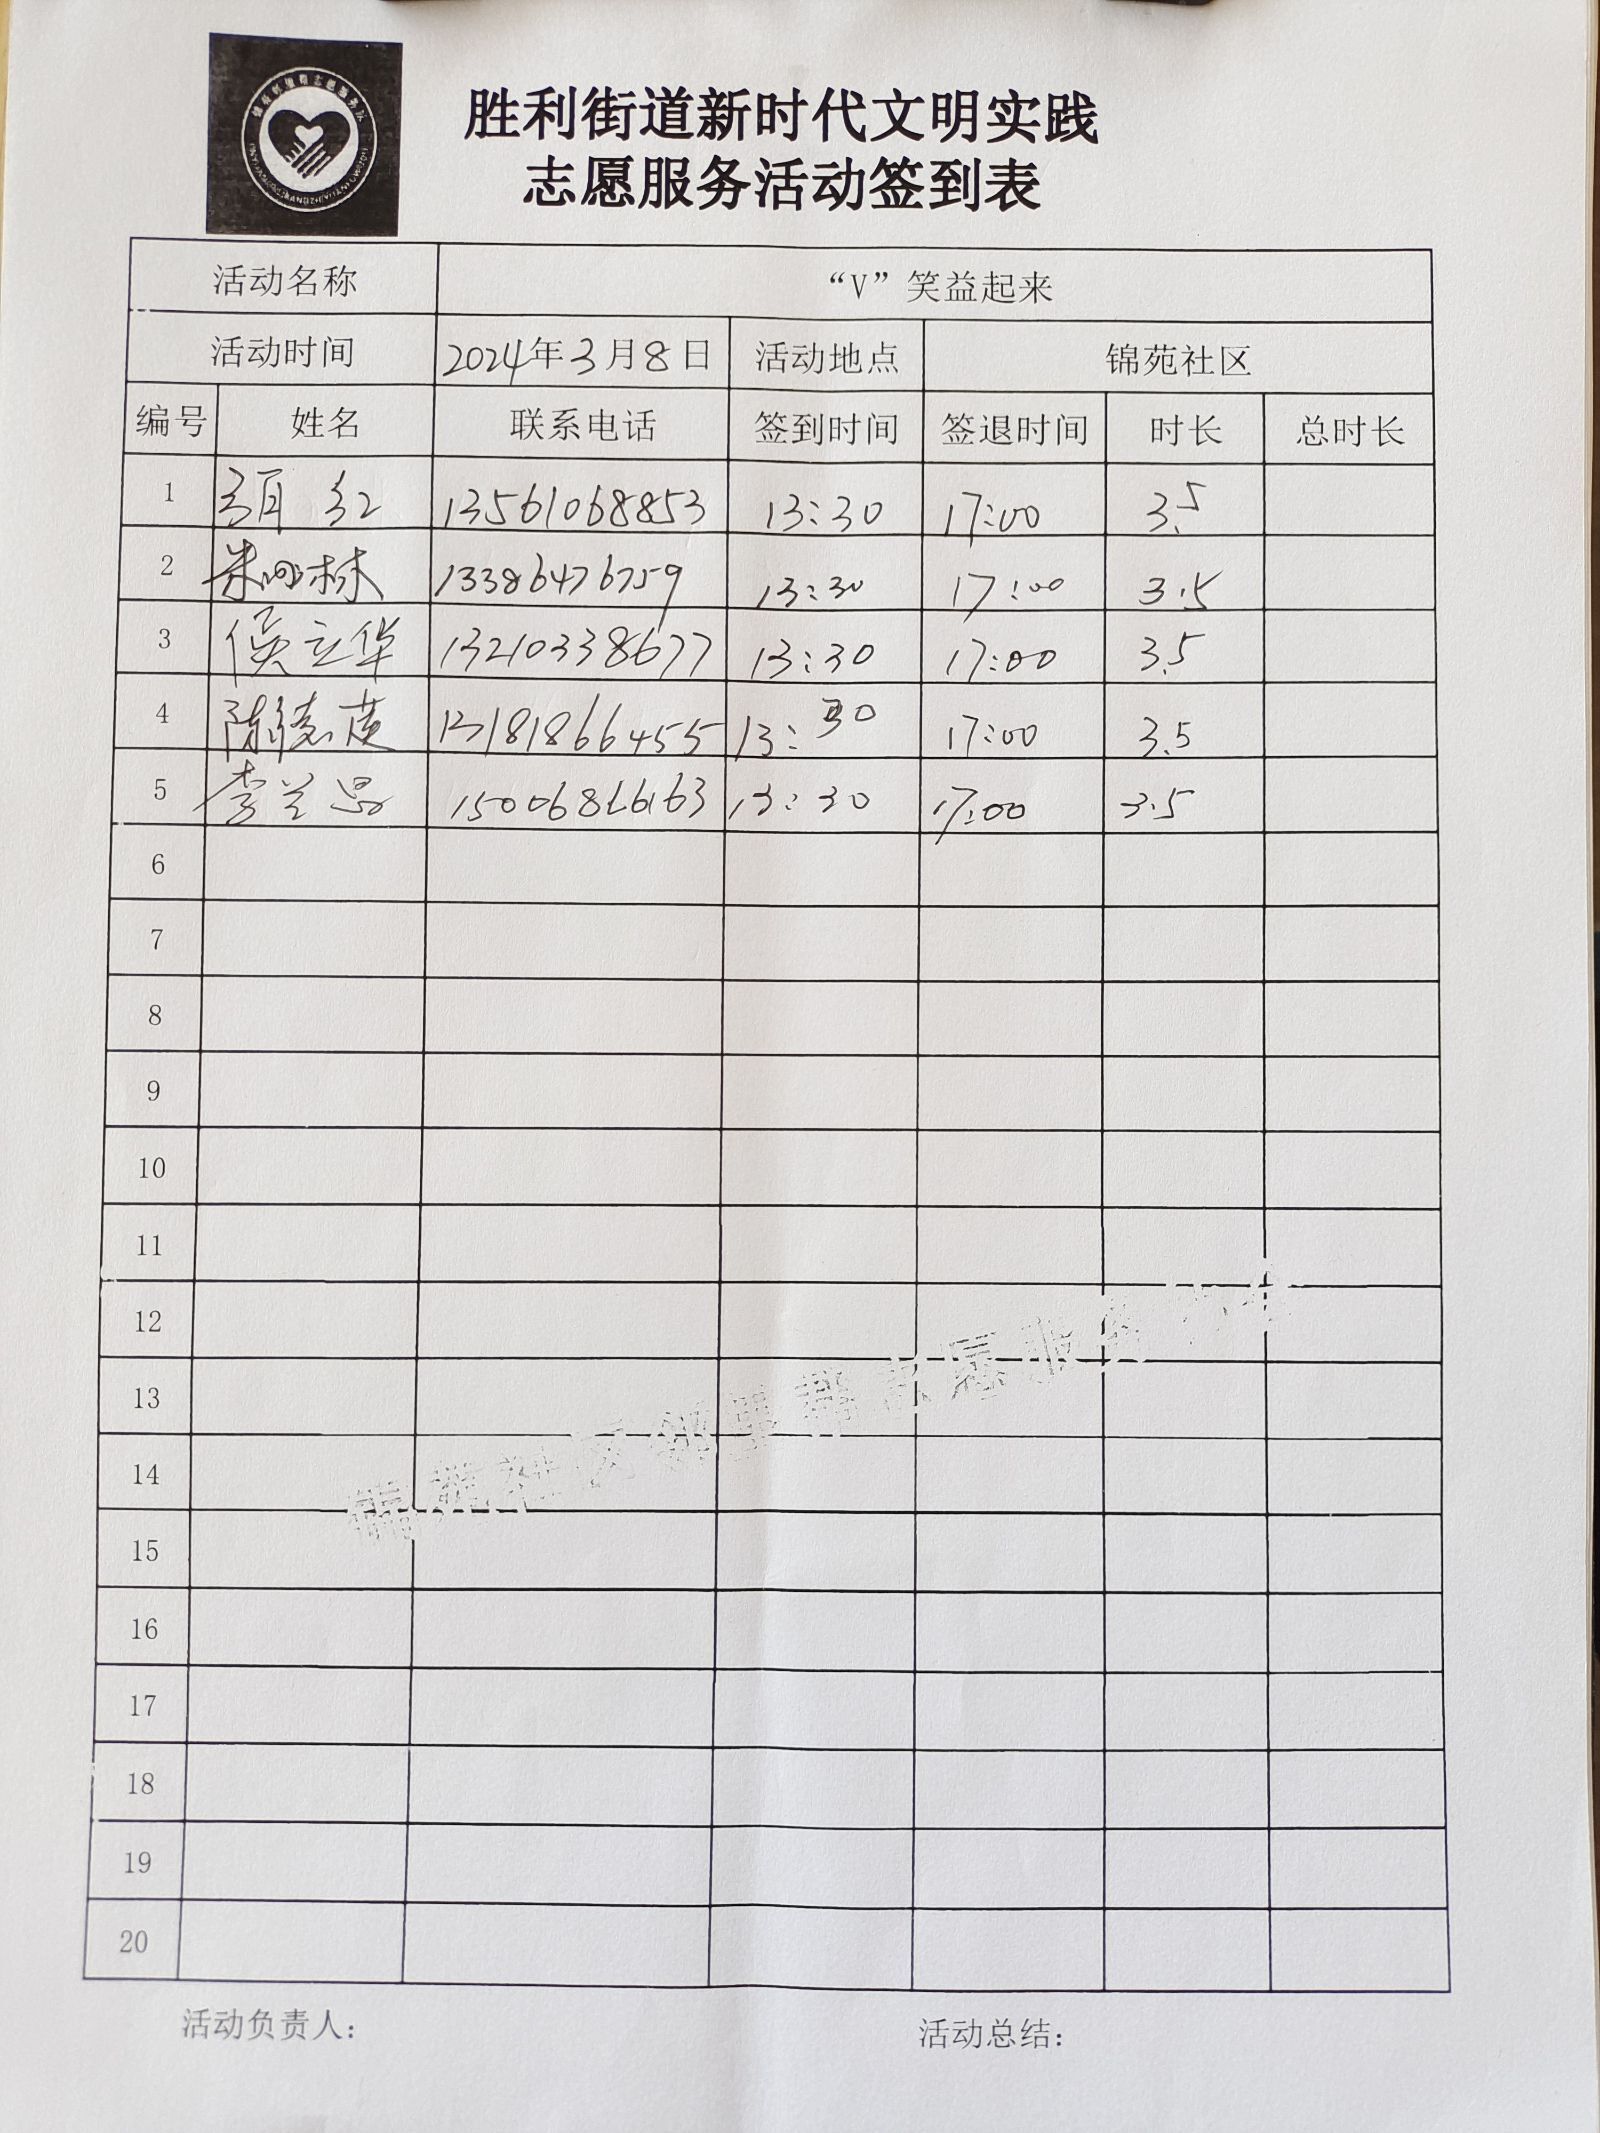 胜利街道新时代文明实践
志愿服务活动签到表
活动名称 “V”笑益起来
活动时间 2024年3月8日 活动地点 锦苑社区
编号 姓名 联系电话 签到时间 签退时间 时长 总时长
1 红 13561068853 13:30 17:00 3.5
2 林 13386476759 13:30 17:00 3.5
3 侯立华 13210338677 13:30 17:00 3.5
4 陈德英 13181866455 13:30 17:00 3.5
5 李兰 13:30 17:00 3.5
6
7
8
9
10
11
12
13
14
15
16
17
18
19
20
活动负责人:
活动总结: